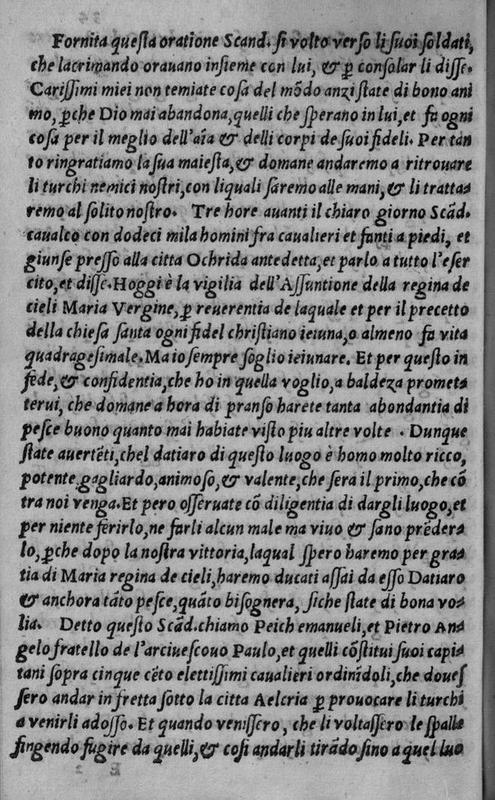 Fornita questa oratione Scand. si volto verso li suoi soldati,
che lacrimando orauano insieme con lui, & ꝑ consolar li disse.
Carissimi miei non temiate cosa del mõdo anzi state di bono ani
mo, ꝑche Dio mai abandona, quelli che sperano in lui, et fa ogni
cosa per il meglio dell'aĩa & delli corpi de suoi fideli. Per tan
to ringratiamo la sua maiesta, & domane andaremo a ritrouare
li turchi nemici nostri, con liquali saremo alle mani, & li tratta-
remo al solito nostro. Tre hore auanti il chiaro giorno Scãd.
caualco con dodeci mila homini fra caualieri et fanti a piedi, et
giunse presso alla citta Ochrida antedetta, et parlo a tutto l'eser
cito, et disse. Hoggi è la vigilia dell'Assuntione della regina de
cieli Maria Vergine, ꝑ reuerentia de laquale et per il precetto
della chiesa santa ogni fidel christiano ieiuna, o almeno fa vita
quadragesimale. Ma io sempre soglio ieiunare. Et per questo in
fede, & confidentia, che ho in quella voglio, a baldeza promet-
terui, che domane a hora di pranso harete tanta abondantia di
pesce buono quanto mai habiate visto piu altre volte . Dunque
state auertẽti, chel datiaro di questo luogo è homo molto ricco,
potente, gagliardo, animoso, & valente, che sera il primo, che cõ
tra noi venga. Et pero osseruate cõ diligentia di dargli luogo, et
per niente ferirlo, ne farli alcun male ma viuo & sano prẽder-
lo, ꝑche dopo la nostra vittoria, laqual spero haremo per gra-
tia di Maria regina de cieli, haremo ducati assai da esso Datiaro
& anchora tãto pesce, quãto bisognera, siche state di bona vo-
lia. Detto questo Scãd. chiamo Peich emanueli, et Pietro An-
gelo fratello de l'arciuescouo Paulo, et quelli cõstitui suoi capi-
tani sopra cinque cẽto elettissimi caualieri ordinãdoli, che doues
sero andar in fretta sotto la citta Aelcria ꝑ prouocare li turchi
a venirli adosso. Et quando venissero, che li voltassero le spalle
fingendo fugire da quelli, & cosi andarli tirãdo sino a quel luo